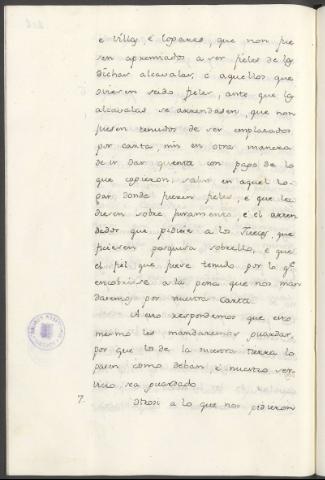 e villas, e logares, que non fue
sen apremiados a ser fieles de las
dichas alcavalas; o aquellos que
oviesen seido fieles, ante que las
alcavalas se arrendasen, que non
fuesen tenudos de ser emplazados
por carta, nin en otra manera
de ir dar quenta con pago de lo
que cogieron, salvo en aquel lo-
gar donde fueren fieles, e que la
diesen sobre juramento, e el arren
dador que pidiese a los Jueces, que
ficiesen pesquisa sobrello, e que
el fiel que fuere tenudo por lo ql
encobriese a la pena que nos man
daremos por nuestra carta.
A esto respondemos que eso
mesmo les mandaremos guardar,
por que los de la nuestra tierra lo
pasen como deban, e nuestro ser-
vicio sea guardado.
7. Otrosi a lo que nos pidieron